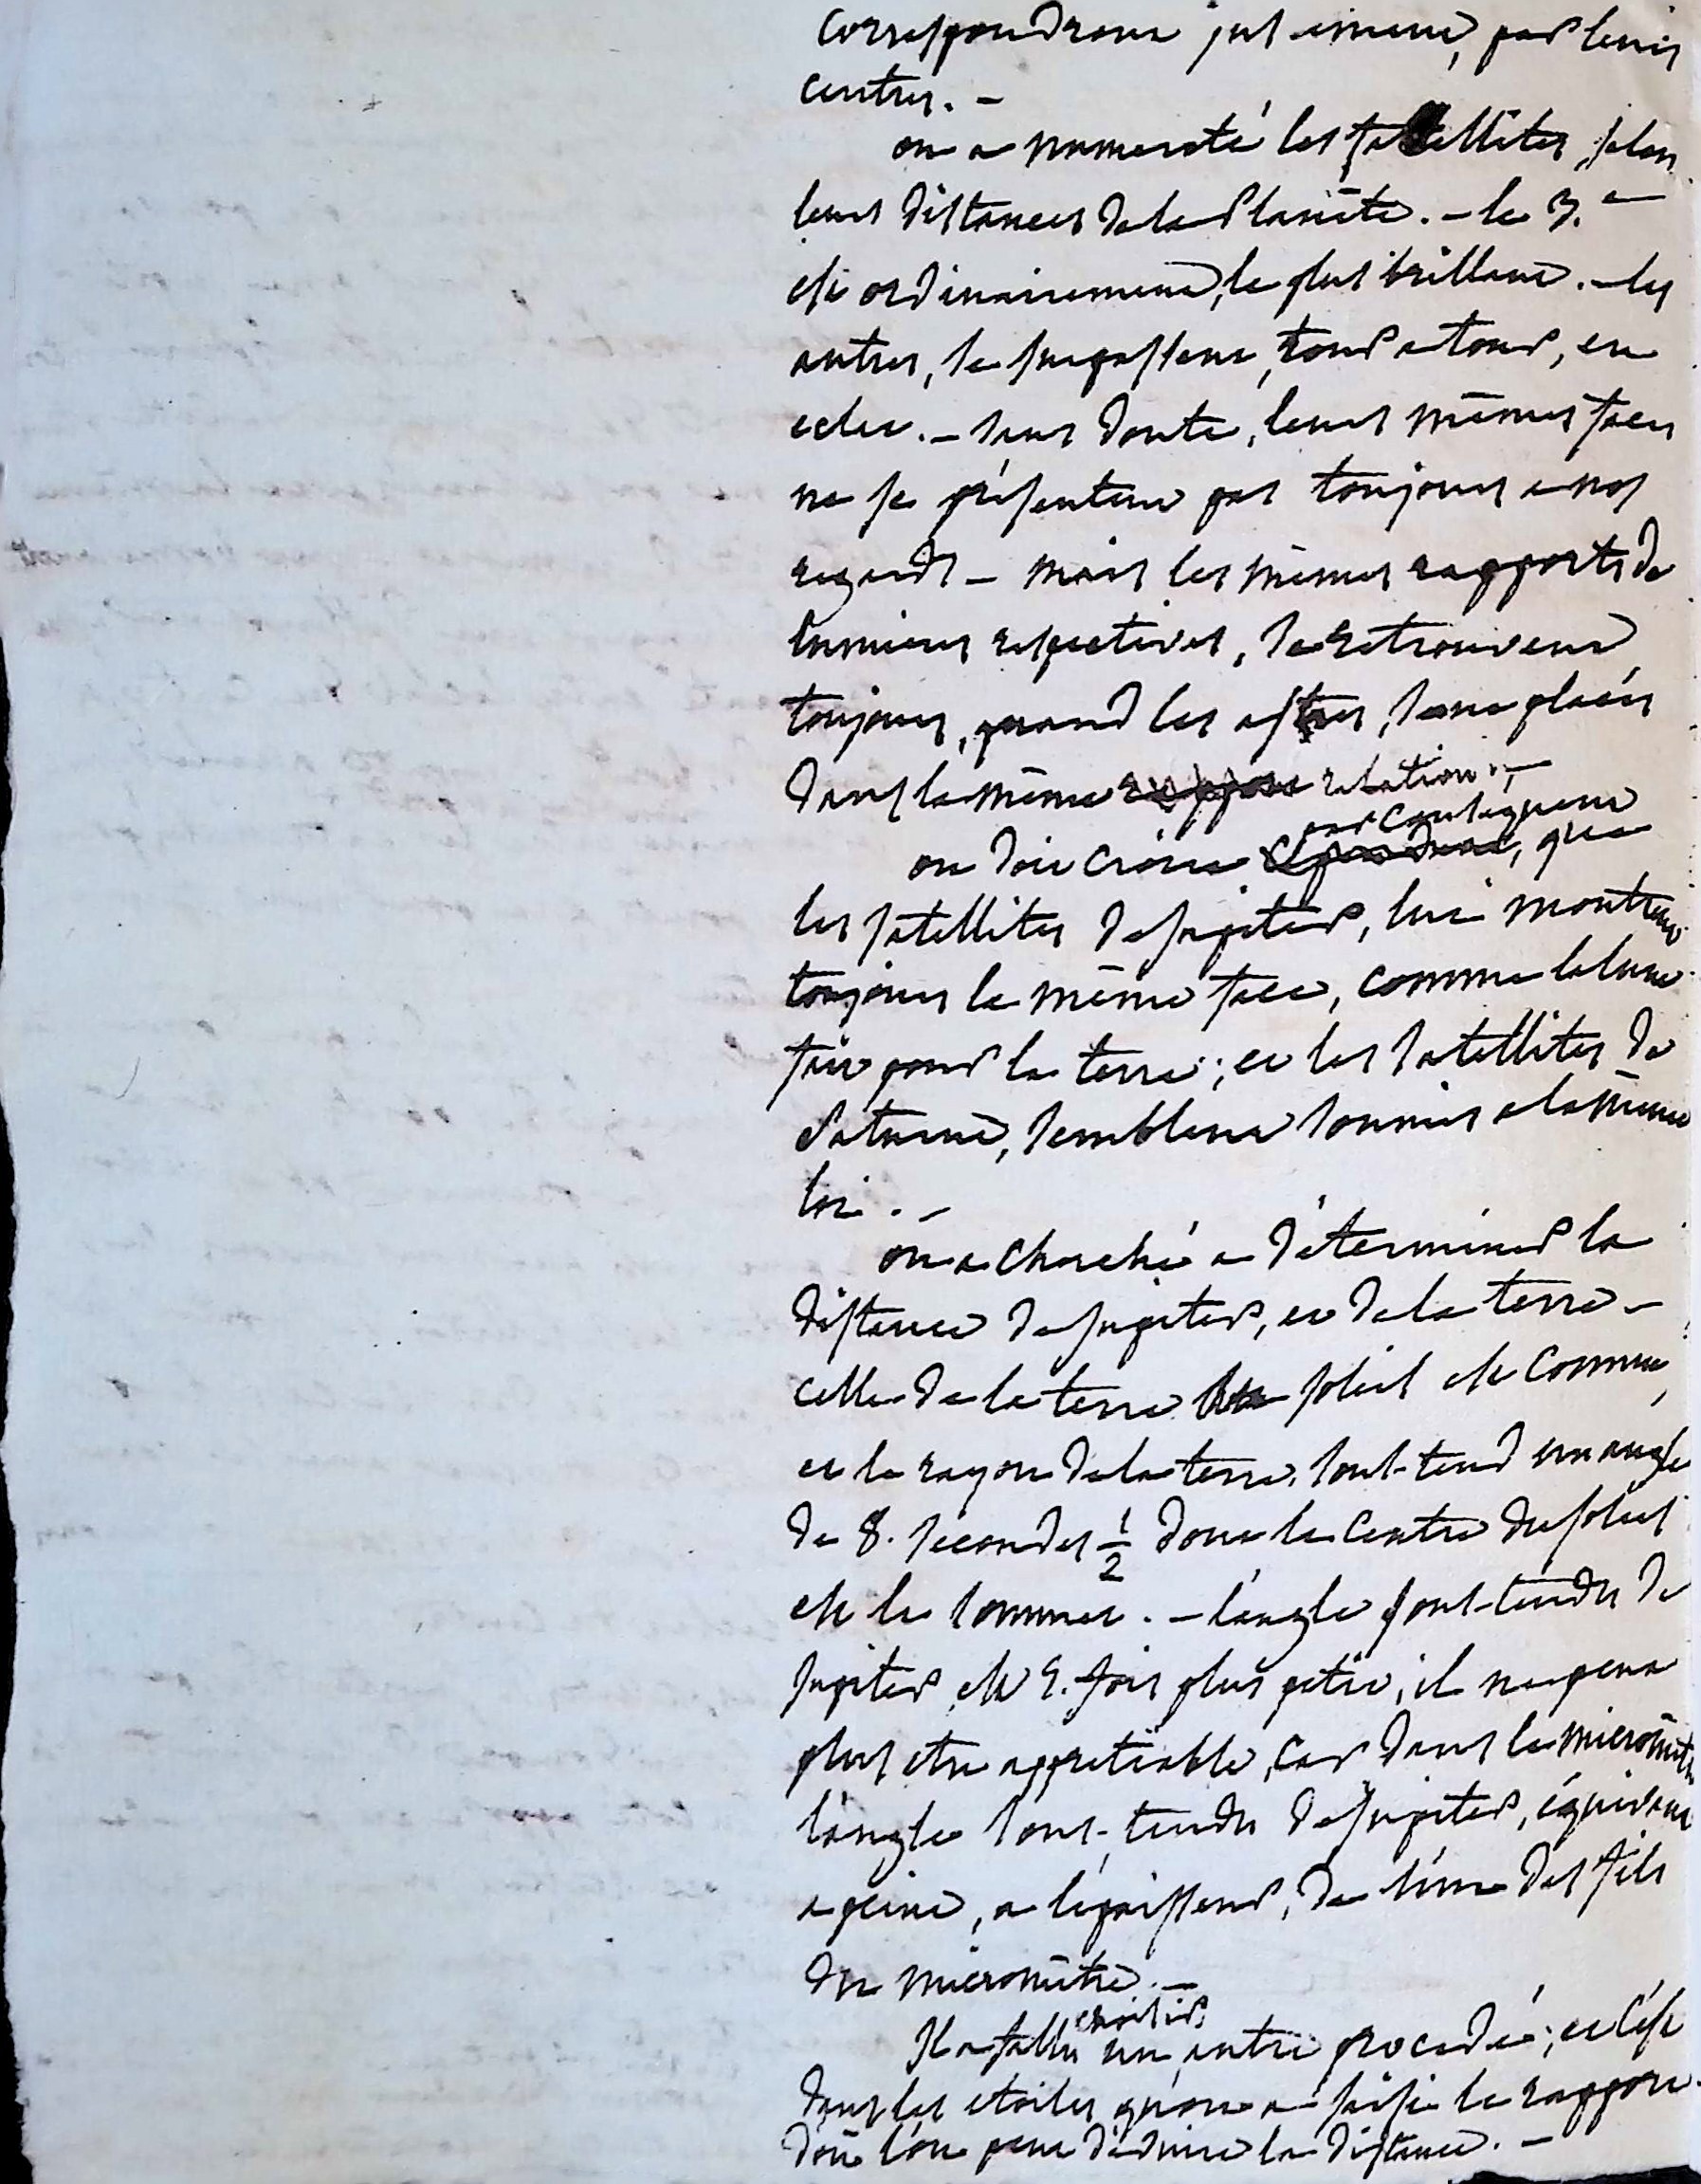 correspondront justement, par leurs
centres. –
on a numeroté les satellites, selon
leurs distances de la Planète. – le 3.e
est ordinairement, le plus brillant. – les
autres, se surpassent, tour a tour, en
eclat. – sans doute, leurs mêmes faces
ne se présentent pas toujours a nos
regards – mais les mêmes rapports de
lumieres respectives, se retrouvent
toujours, quand les astres, sont placés
dans la même rapport relation. –
par consequent
on doit croire que
les satellites de Jupiter, lui montrent
toujours la même face, comme la lune
fait pour la terre ; et les satellites de
Saturne, semblent soumis a la même
loi. –
on a cherché a déterminer la
distance de Jupiter, et de la terre –
celle de la terre soleil est connue,
et le rayon de la terre, sous-tend un angle
de 8. secondes 1/2 dont le centre du soleil
est le sommet. – l'angle sous-tendu de
Jupiter, est 5. fois plus petit ; il ne peut
plus etre appretiable, car dans le micromètre
l'angle sous-tendu de Jupiter, équivaut
a peine, a l'épaisseur, de l'un des fils
du micromètre. –
choisir
Il a fallu un autre procédé ; et c'est
dans les etoiles qu'on a saisi le rapport
dont l'on peut déduire la distance. –